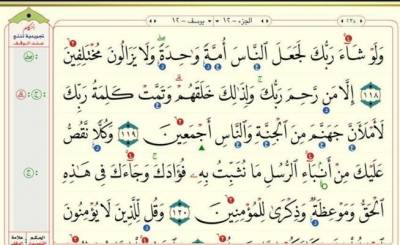 الجزء -١٢ يوسف -١٢
وَلَوْ شَآءَ رَبُّكَ لَجَعَلَ ٱلنَّاسَ أُمَّةً وَٰحِدَةً وَلَا يَزَالُونَ مُخْتَلِفِينَ
١١٨ إِلَّا مَن رَّحِمَ رَبُّكَ وَلِذَٰلِكَ خَلَقَهُمْ وَتَمَّتْ كَلِمَةُ رَبِّكَ
لَأَمْلَأَنَّ جَهَنَّمَ مِنَ ٱلْجِنَّةِ وَٱلنَّاسِ أَجْمَعِينَ ١١٩ وَكُلًّا نَّقُصُّ
عَلَيْكَ مِنْ أَنۢبَآءِ ٱلرُّسُلِ مَا نُثَبِّتُ بِهِۦ فُؤَادَكَ وَجَآءَكَ فِى هَٰذِهِ
ٱلْحَقُّ وَمَوْعِظَةٌ وَذِكْرَىٰ لِلْمُؤْمِنِينَ ١٢٠ وَقُل لِّلَّذِينَ لَا يُؤْمِنُونَ